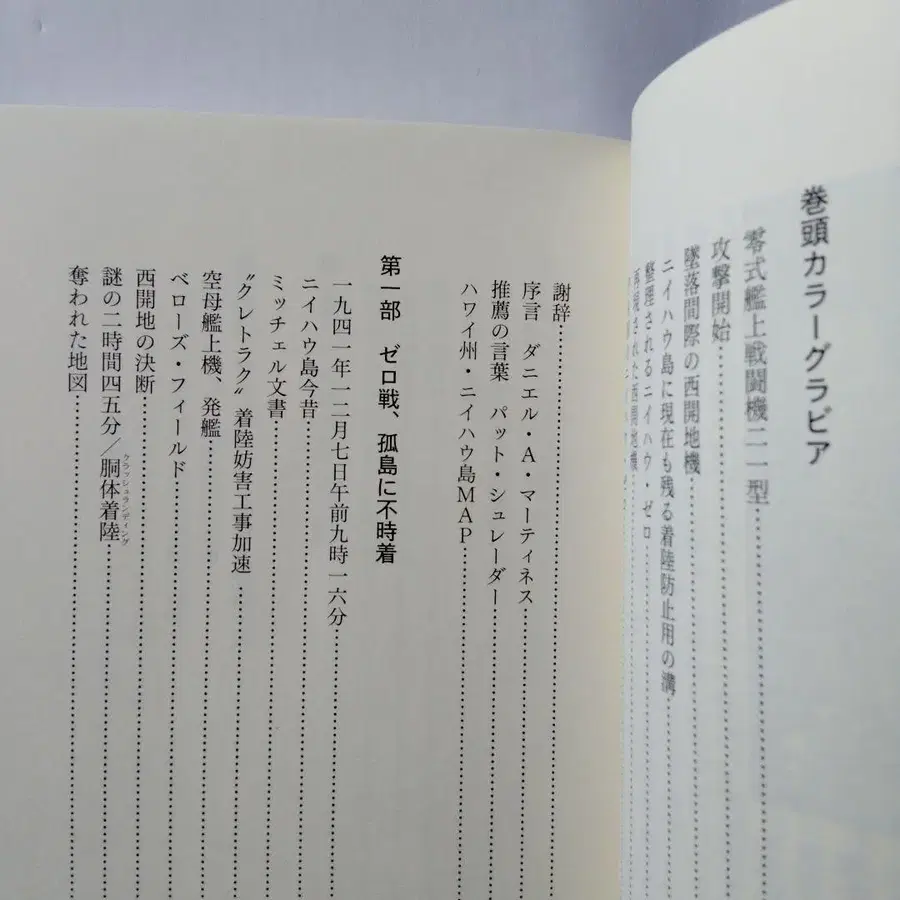 巻頭カラーグラビア
零式艦上戦闘機二一型
攻撃開始
墜落間際の西開地機
ニイハウ島に現在も残る着陸防止用の溝
整理されるニイハウ・ゼロ
再現された西開地機
謝辞
序言 ダニエル・A・マーティネス
推薦の言葉 パット・シュレーダー
ハワイ州・ニイハウ島MAP
第一部 ゼロ戦、孤島に不時着
一九四一年一二月七日午前九時一六分
ニイハウ島今昔
ミッチェル文書
〝クレトラク〟着陸妨害工事加速
空母艦上機、発艦
ベローズ・フィールド
西開地の決断
謎の二時間四五分／胴体着陸
クラッシュランディング
奪われた地図